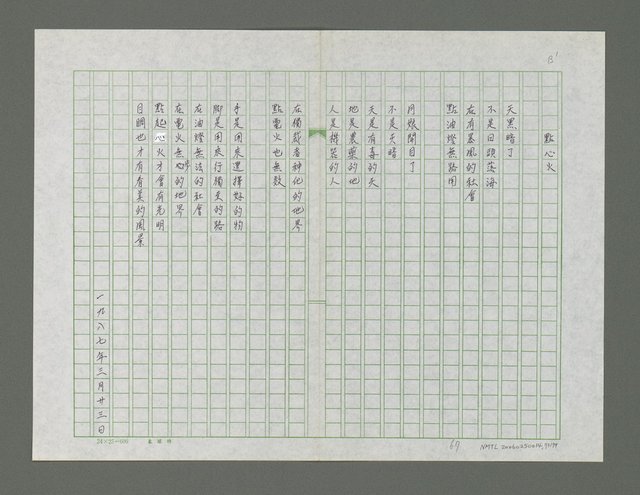 B'
點心火
天黑暗了
不是日頭落海
在有暴風的社會
點油燈無路用
目睭開目了
不是天暗
天是有毒的天
地是農藥的地
人是機器的人
在獨裁者神化的世界
點電火也無效
手是用來選擇好的物
腳是用來行獨立的路
在油燈無法的社會
在電火無心的地界
點起心火才會有光明
目睭也才有看美的風景
一九八七年三月廿三日
24×25=600
67